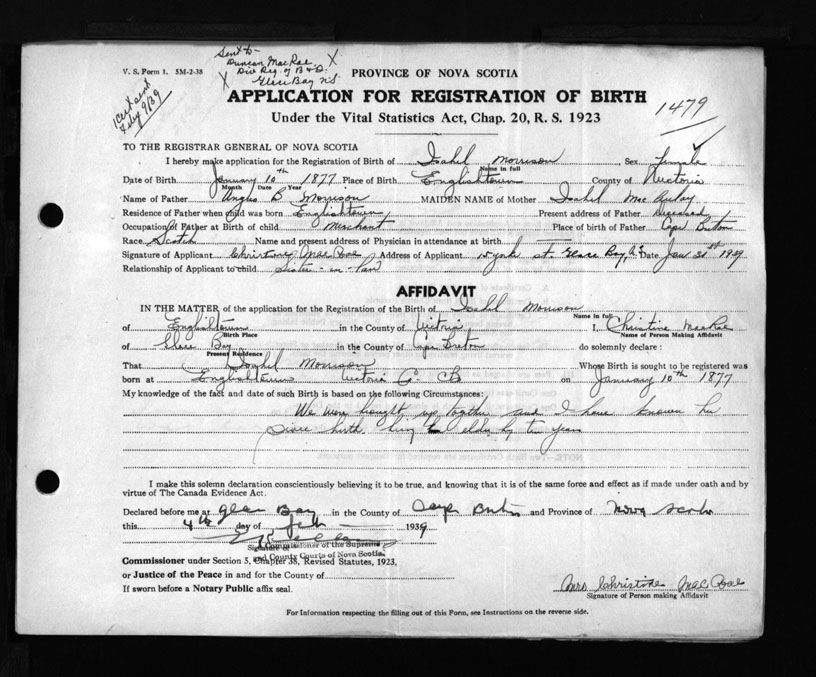 Sent to
Duncan MacRae X
V. S. Form 1. 5M-2-38
X Div Reg. of B & D.
Glace Bay N.S.
PROVINCE OF NOVA SCOTIA
1 Cert sent
Feby 9/39
APPLICATION FOR REGISTRATION OF BIRTH
1479
Under the Vital Statistics Act, Chap. 20, R. S. 1923
TO THE REGISTRAR GENERAL OF NOVA SCOTIA
I hereby make application for the Registration of Birth of Isabel Morrison Sex Female
Name in full
Date of Birth January 10th 1877 Place of Birth Englishtown County of Victoria
Month Date Year
Name of Father Angus B Morrison MAIDEN NAME of Mother Isabel Mac Aulay
Residence of Father when child was born Englishtown Present address of Father Deceased
Occupation of Father at Birth of child Merchant Place of birth of Father Cape Breton
Race Scotch Name and present address of Physician in attendance at birth
Signature of Applicant Christine MacRae Address of Applicant 15 York St. Glace Bay, N.S. Date Jan 31st 1939
Relationship of Applicant to child Sister-in-law
AFFIDAVIT
IN THE MATTER of the application for the Registration of the Birth of Isabel Morrison
Name in full
of Englishtown in the County of Victoria I, Christine MacRae
Birth Place Name of Person Making Affidavit
of Glace Bay in the County of Cape Breton do solemnly declare :
Present Residence
That Isabel Morrison Whose Birth is sought to be registered was
born at Englishtown Victoria Co. CB on January 10th 1877
My knowledge of the fact and date of such Birth is based on the following Circumstances:
We were brought up together and I have known her
since birth being elder by ten years
I make this solemn declaration conscientiously believing it to be true, and knowing that it is of the same force and effect as if made under oath and by
virtue of The Canada Evidence Act.
Declared before me at Glace Bay in the County of Cape Breton and Province of Nova Scotia
this 4th day of Feb 1939
Signature of
A Commissioner of the Supreme
and County Courts of Nova Scotia.
Commissioner under Section 5, Chapter 38, Revised Statutes, 1923,
or Justice of the Peace in and for the County of
If sworn before a Notary Public affix seal.
Mrs Christine MacRae
Signature of Person making Affidavit
For Information respecting the filling out of this Form, see Instructions on the reverse side.